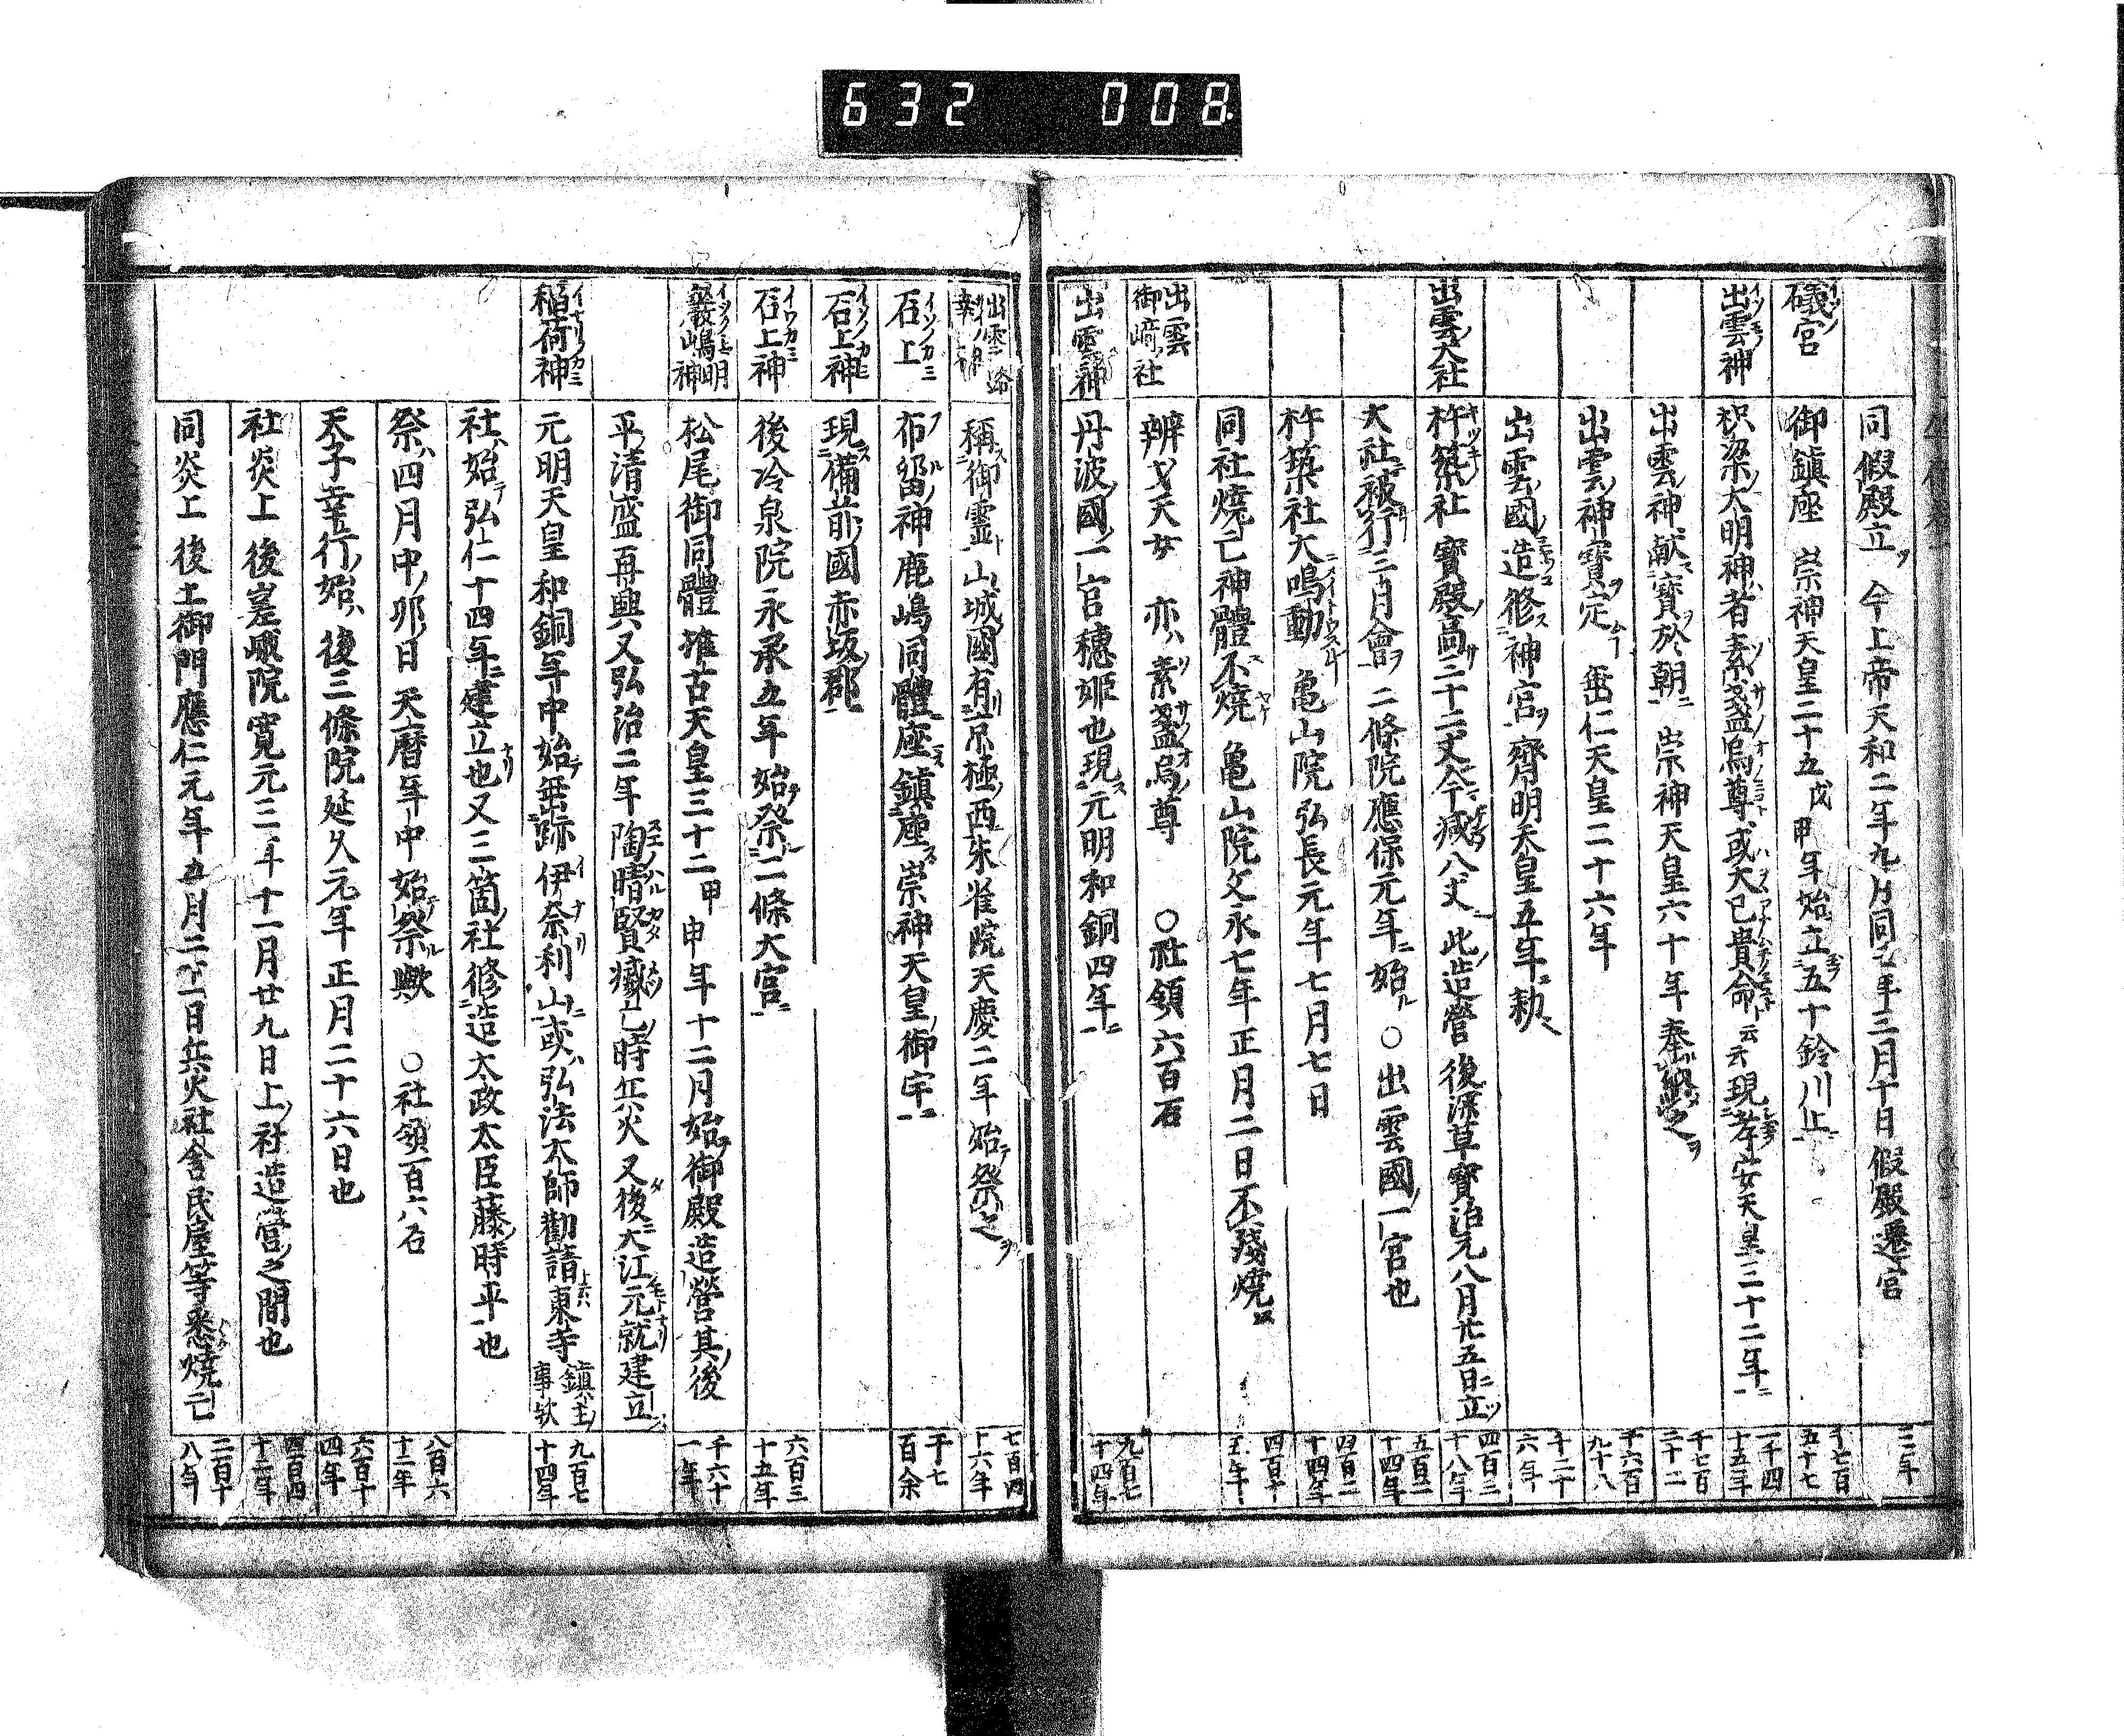 632 008
同假殿立ヲ 今上帝天和二年九月同三年三月十日假殿遷宮 二年
礒宮 御鎮座 崇神天皇二十五戊甲年始立五十鈴川上 千七百五十七
出雲神 枳梁大明神者素盞烏尊或大已貴命ト云云現孝安天皇三十二年 一千四十五年
出雲神献寶於朝 崇神天皇六十年奉納之 千七百二十二
出雲神寶定 垂仁天皇二十六年 千六百九十八
出雲國造修神宮 齊明天皇五年勅 千二十六年
出雲大社 杵築社 寶殿高三十二丈今减八丈 此造營後深草寶治元八月廿五日立 四百三十八年
大社被行三月會 二條院應保元年始 ○出雲國一宮也 五百二十四年
杵築社大鳴動 亀山院弘長元年七月七日 四百二十四年
同社燒亡神體不燒 亀山院文永七年正月二日不殘燒 四百十五年
出雲御﨑社 辨才天女 亦ハ素盞烏尊 ○社領六百石
出雲神 丹波國一宮穗姫也現元明和銅四年 九百七十四年
出雲路 稱御霊 山城國有京極西朱雀院天慶二年始祭之 七百四十六年
石上 布留神鹿嶋同體座鎮座崇神天皇御宇 千七百余
石上神 現備前國赤坂郡
石上神 後冷泉院永承五年始祭二條大宮 六百三十五年
嚴嶋明神 松尾御同體 推古天皇三十二甲申年十二月始御殿造營其後 千六十一年
平清盛再興又弘治二年陶晴賢㓕亡時兵火又後大江元就建立
稻荷神 元明天皇和銅年中始垂跡伊奈利山或ハ弘法大師勸請東寺鎮主事欤 九百七十四年
社始弘仁十四年建立也又三箇社修造太政太臣藤時平也
祭四月中ノ卯日天曆年中始祭歟 ○社領百六石 八百六十二年
天子幸行始ハ後三條院延久元年正月二十六日也 六百十四年
社炎上後嵯峨院寛元三年十一月廿九日上社造營之間也 四百四十二年
同炎上後土御門應仁元年五月二十一日兵火社舎民屋等悉燒亡 二百十八年